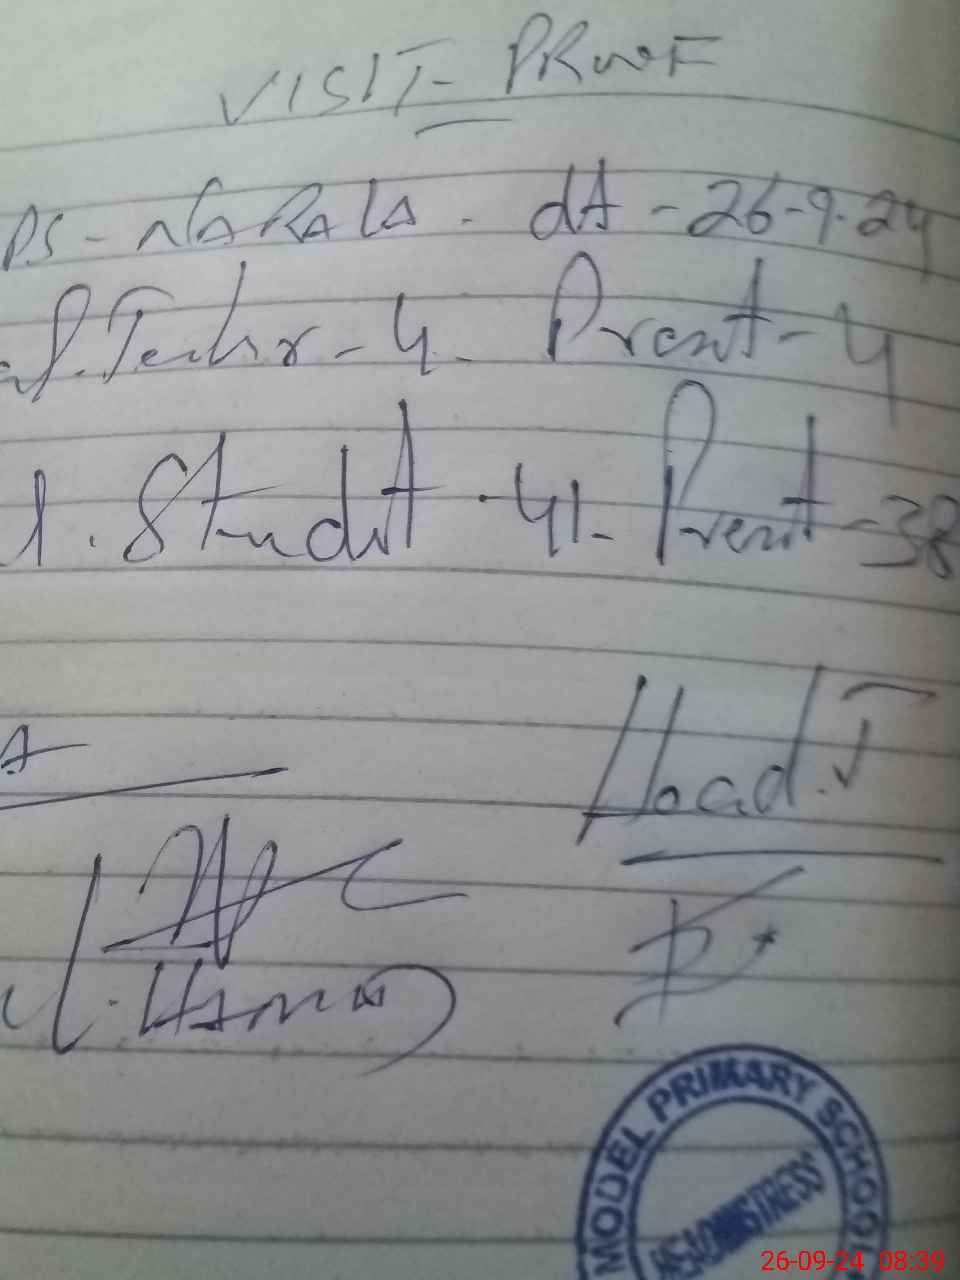 VISIT - PROOF
PS - NARALA - dt - 26-9-24
Techr - 4. Presnt - 4
l. Studnt - 41. Presnt - 38
Head.T
MODEL PRIMARY SCHOOL
HEADMISTRESS
26-09-24 08:39